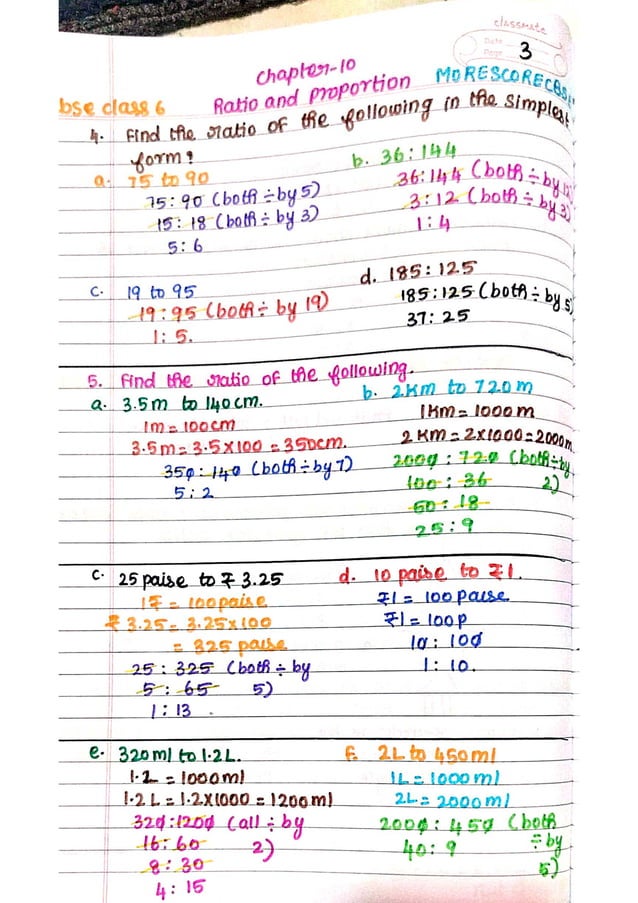 classmate
Date
Page 3
Chapter-10
MORESCORECBSE
bse class 6 Ratio and proportion
4. Find the ratio of the following in the simplest form?
a. 75 to 90
75:90 (both ÷ by 5)
15:18 (both ÷ by 3)
5:6
b. 36:144
36:144 (both ÷ by 12)
3:12 (both ÷ by 3)
1:4
c. 19 to 95
19:95 (both ÷ by 19)
1:5.
d. 185:125
185:125 (both ÷ by 5)
37:25
5. Find the ratio of the following.
a. 3.5m to 140cm.
1m = 100cm
3.5m = 3.5×100 = 350cm.
350:140 (both ÷ by 7)
5:2
b. 2km to 720m
1km = 1000m
2km = 2×1000 = 2000m
2000:720 (both ÷ by 2)
100:36
50:18
25:9
c. 25 paise to ₹ 3.25
1₹ = 100 paise
₹ 3.25 = 3.25×100
= 325 paise
25:325 (both ÷ by 5)
5:65
1:13.
d. 10 paise to ₹1.
₹1 = 100 paise
₹1 = 100p
10:100
1:10.
e. 320ml to 1.2L.
1.2 = 1000ml
1.2L = 1.2×1000 = 1200ml
320:1200 (all ÷ by 2)
16:60
8:30
4:15
f. 2L to 450ml
1L = 1000ml
2L = 2000ml
2000:450 (both ÷ by 5)
40:9